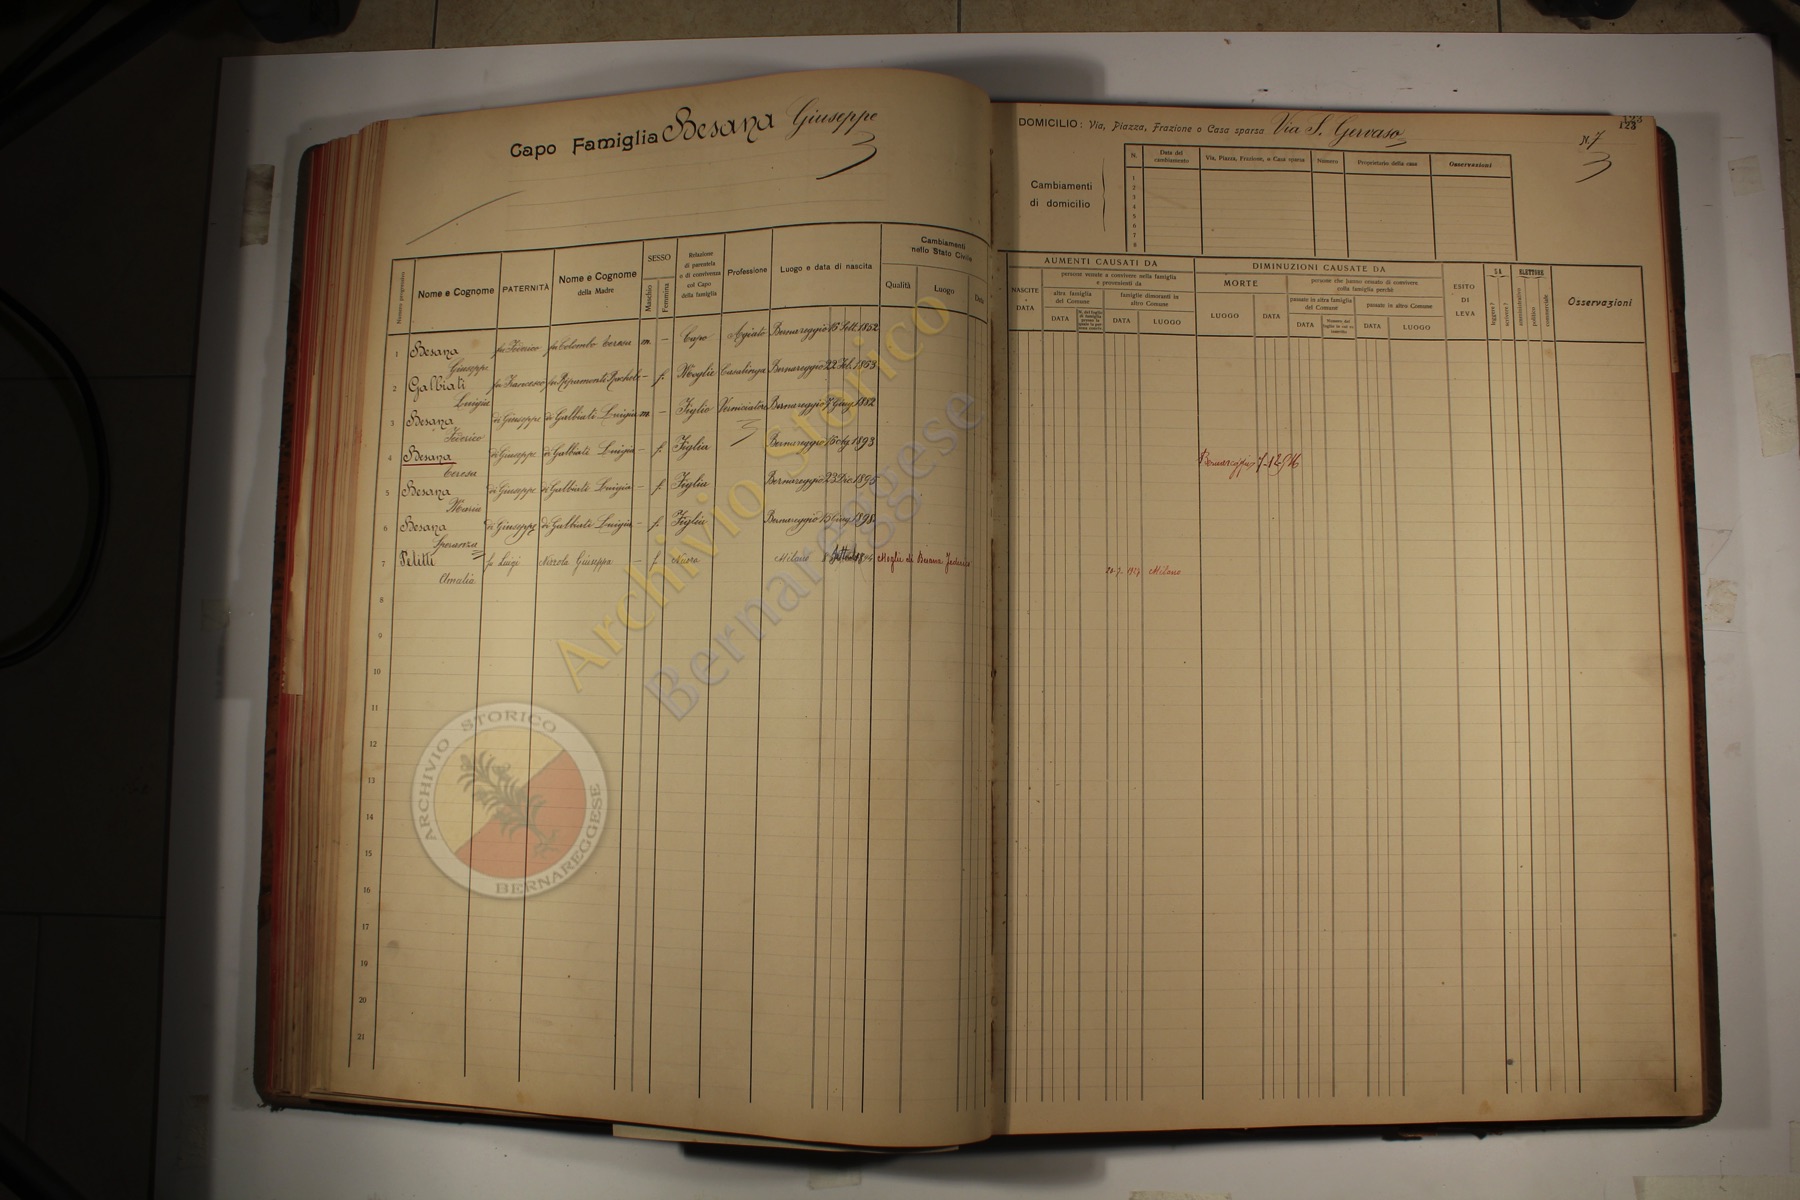 Capo Famiglia Besana Giuseppe
DOMICILIO: Via, Piazza, Frazione o Casa sparsa Via S. Gervaso
N. 7
123
123
Cambiamenti
di domicilio
N. Date del cambiamento Via, Piazza, Frazione, o Casa sparsa Numero Proprietario della casa Osservazioni
1
2
3
4
5
6
7
8
Numero progressivo
Nome e Cognome
PATERNITÀ
Nome e Cognome della Madre
SESSO
Maschio
Femmina
Relazione di parentela o di convivenza col Capo della famiglia
Professione
Luogo e data di nascita
Cambiamenti nello Stato Civile
Qualità Luogo Data
AUMENTI CAUSATI DA
NASCITE - DATA
persone venute a convivere nella famiglia e provenienti da
altra famiglia del Comune
famiglie dimoranti in altro Comune
DATA
DATA LUOGO
DIMINUZIONI CAUSATE DA
MORTE
LUOGO DATA
persone che hanno cessato di convivere colla famiglia perchè
passate in altra famiglia del Comune
passate in altro Comune
DATA
DATA LUOGO
ESITO DI LEVA
SA
leggere?
scrivere?
ELETTORE
amministrativo
politico
commerciale
Osservazioni
1 Besana Giuseppe fu Federico fu Colombo Teresa m. — Capo Agiato Bernareggio 15 Sett. 1852
2 Galbiati Luigia fu Francesco fu Ripamonti Rachele — f. Moglie Casalinga Bernareggio 22 Feb. 1863
3 Besana Federico di Giuseppe di Galbiati Luigia m. — Figlio Verniciatore Bernareggio 7 Giug. 1882
4 Besana Teresa di Giuseppe di Galbiati Luigia — f. Figlia Bernareggio 15 1893 Bernareggio 7-12-916
5 Besana Maria di Giuseppe di Galbiati Luigia — f. Figlia Bernareggio 23 Dic. 1895
6 Besana Speranza di Giuseppe di Galbiati Luigia — f. Figlia Bernareggio 15 Giug. 1898
7 Peletti Amalia fu Luigi Giuseppa — f. Nuora Milano 8 Moglie di Besana Federico 20-7-1927 Milano
8
9
10
11
12
13
14
15
16
17
18
19
20
21
Archivio Storico
Bernareggese
ARCHIVIO STORICO
BERNAREGGESE